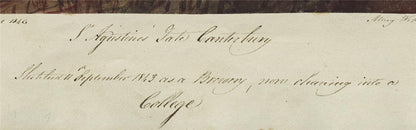 Mary
St Agustines Gate Canterbury
Sketched September 1843 as a Brewery, now chaning into a
College